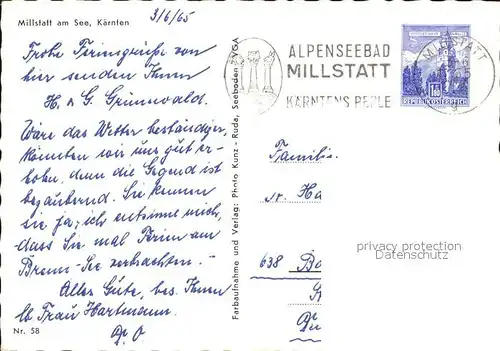 Millstatt am See, Kärnten
3/6/65
Frohe Feriengrüße von
hier senden Ihnen
H. & G. Grünwald.
Wäre das Wetter beständiger,
könnten wir uns gut er-
holen, denn die Gegend ist
bezaubernd. Sie kennen
sie ja; ich entsinne mich,
dass Sie mal Ferien am
Brenn-See verbrachten.
Alles Gute, bes. Ihnen
lb Frau Hartmann.
Nr. 58
Farbaufnahme und Verlag: Photo Kunz - Ruda, Seeboden ZVGA
ALPENSEEBAD
MILLSTATT
KÄRNTENS PERLE
MILLSTATT
REPUBLIK ÖSTERREICH
Familie
Ha
638 Bo
privacy protection
Datenschutz